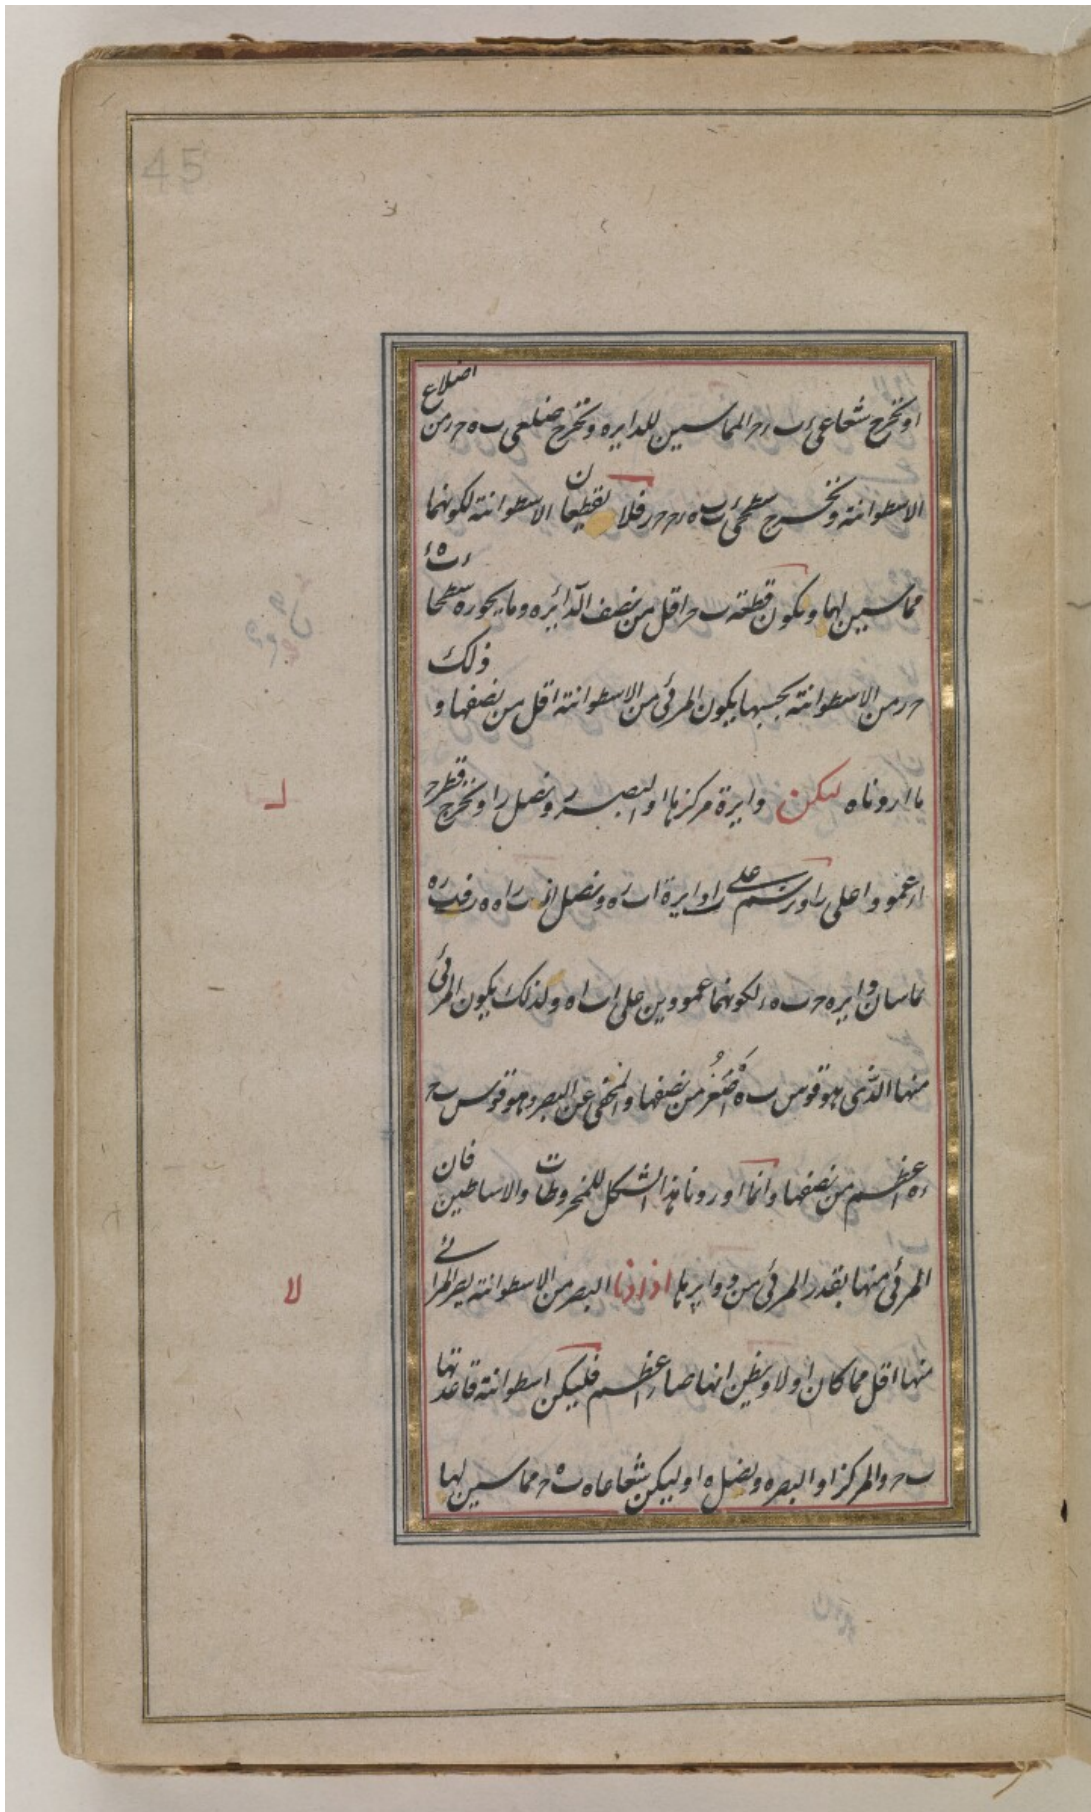 45
او نخرج شعاعى ء ب ء ح المماسين للدايره ونخرج ضلعى ب ه ح ر من اضلاع
الاسطوانة ونخرج سطحى ء ب ه ء ح ر فلا يقطعان الاسطوانة لكونهما
مماسين لها ويكون قطعة ب ح اقل من نصف الدائره وما يحوزه سطحا ء ب ه ء
ح ر من الاسطوانة بحسبها يكون المرئى من الاسطوانة اقل من نصفها و ذلك
ما اردناه ليكن دايرة مركزها ا والبصر ر ونصل ر ا ونخرج قطر ح
ا ء عمودا على ر ا ورسم على ر ا دايرة ا ب ر ه ونصل ا ب ب ر ا ه ه ر ف ب ر ر ه
يماسان دايره ح ب ه ء لكونهما عمودين على ا ب ا ه ولذلك يكون المرئى
منها الذى هو قوس ب ه اصغر من نصفها والمخفى عن البصر وهو قوس ب ح
ء ه اعظم من نصفها وانما اوردنا هذا الشكل للمخروطات والاساطين فان
المرئى منها بقدر المرئى من دوايرها اذا دنا البصر من الاسطوانة يصير المرائى
منها اقل مما كان اولا ويظن انها صار اعظم فليكن اسطوانة قاعدتها
ب ح والمركز ا والبصر ه ونصل ه ا وليكن شعاعا ه ب ه ح مماسين لها
ل
لا